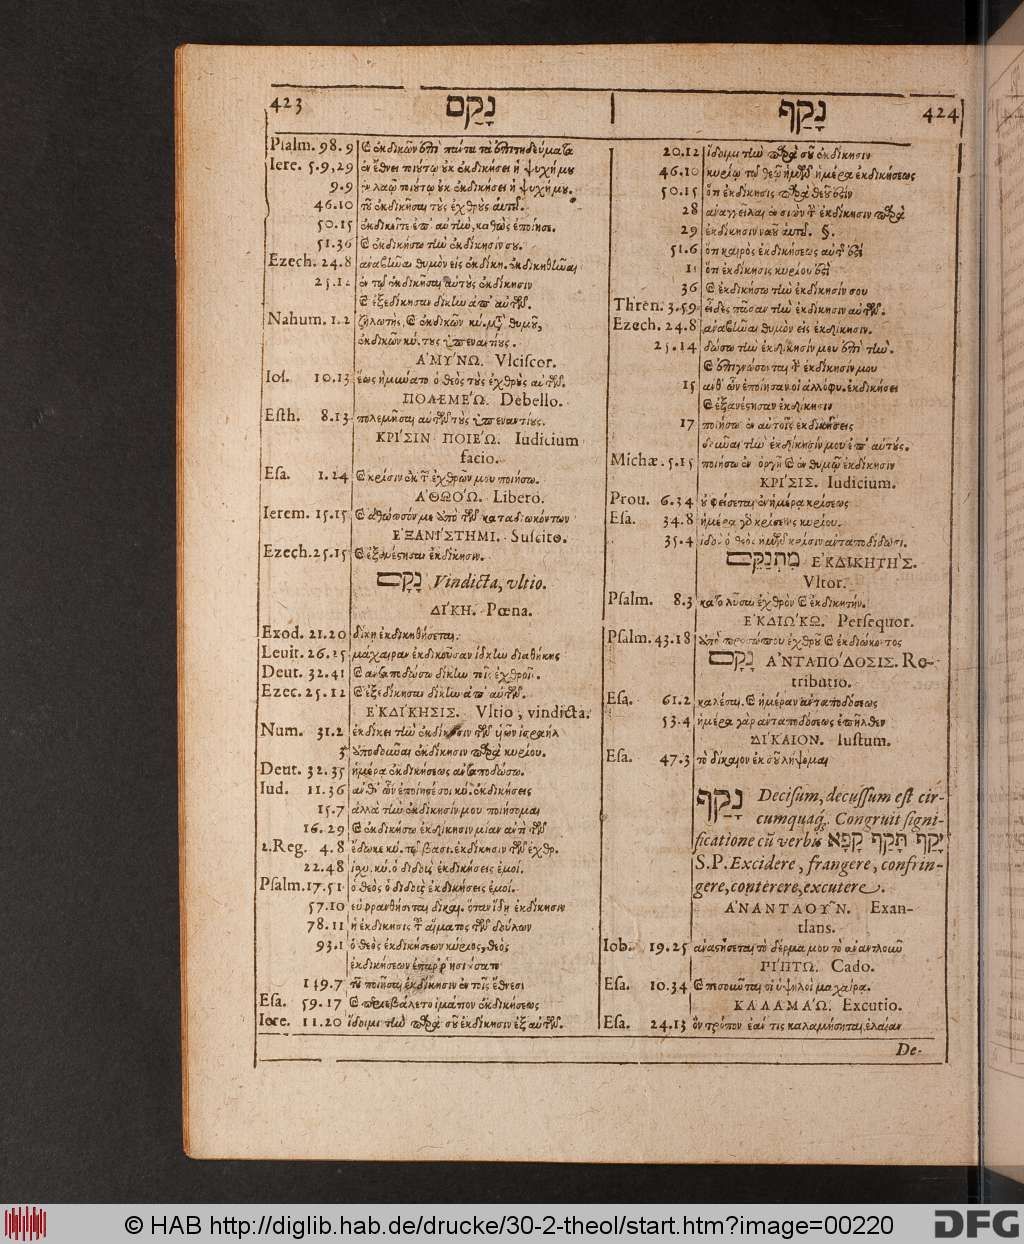 423 נָקַם
Psalm. 98.9 ἐκδικῶν ἐπὶ πάντα τὰ ἐπιτηδεύματα
Iere. 5.9,29 ἐν ἔθνει τοιούτῳ οὐκ ἐκδικήσει ἡ ψυχή μου
9.9 λαῷ τοιούτῳ οὐκ ἐκδικήσει ἡ ψυχή μου.
46.10 τοῦ ἐκδικῆσαι τοὺς ἐχθροὺς αὐτοῦ.
50.15 ἐκδικεῖτε ἐπ' αὐτὴν, καθὼς ἐποίησε.
51.36 ἐκδικήσω τὴν ἐκδίκησίν σου.
Ezech. 24.8 ἀναβῆναι θυμὸν εἰς ἐκδίκη. ἐκδικηθῆναι
25.12 ἐν τῷ ἐκδικῆσαι αὐτοὺς ἐκδίκησιν
ἐξεδίκησαν δίκην ἀπ' αὐτῶν.
Nahum. 1.2 ζηλωτὴς, ἐκδικῶν κύ. μετὰ θυμοῦ,
ἐκδικῶν κύ. τοὺς ὑπεναντίους.
ἈΜΎΝΩ. Vlciscor.
Ios. 10.13 ἕως ἠμύνατο ὁ θεὸς τοὺς ἐχθροὺς αὐτῶν.
ΠΟΛΕΜΈΩ. Debello.
Esth. 8.13 πολεμῆσαι αὐτῶν τοὺς ὑπεναντίους.
ΚΡΊΣΙΝ ΠΟΙΈΩ. Iudicium
facio.
Esa. 1.24 κρίσιν ἐκ τῶν ἐχθρῶν μου ποιήσω.
ἈΘΩΌΩ. Libero.
Ierem. 15.15 ἀθώωσόν με ἀπὸ τῶν καταδιωκόντων
ἘΞΑΝΊΣΤΗΜΙ. Suscito.
Ezech. 25.15 ἐξανέστησαν ἐκδίκησιν.
נָקָם Vindicta, vltio.
ΔΊΚΗ. Pœna.
Exod. 21.20 δίκῃ ἐκδικηθήσεται.
Leuit. 26.25 μάχαιραν ἐκδικοῦσαν δίκην διαθήκης
Deut. 32.41 ἀνταποδώσω δίκην τοῖς ἐχθροῖς.
Ezec. 25.12 ἐξεδίκησαν δίκην ἀπ' αὐτῶν.
ἘΚΔΊΚΗΣΙΣ. Vltio, vindicta.
Num. 31.2 ἐκδίκει τὴν ἐκδίκησιν τῶν υἱῶν ἰσραήλ
3 ἀποδοῦναι ἐκδίκησιν παρὰ κυρίου.
Deut. 32.35 ἡμέρᾳ ἐκδικήσεως ἀνταποδώσω.
Iud. 11.36 ἀνθ' ὧν ἐποίησέ σοι κύ. ἐκδικήσεις
15.7 ἀλλὰ τὴν ἐκδίκησίν μου ποιήσομαι
16.29 ἐκδικήσω ἐκδίκησιν μίαν ἀντὶ τῶν
2.Reg. 4.8 ἔδωκε κύ. τῷ βασι. ἐκδίκησιν τῶν ἐχθρ.
22.48 ἰσχυ. κύ. ὁ διδοὺς ἐκδικήσεις ἐμοί.
Psalm. 17.51 ὁ θεὸς ὁ διδοὺς ἐκδικήσεις ἐμοί.
57.10 εὐφρανθήσεται δίκαι. ὅταν ἴδῃ ἐκδίκησιν
78.11 ἡ ἐκδίκησις τοῦ αἵματος τῶν δούλων
93.1 ὁ θεὸς ἐκδικήσεων κύριος, θεὸς
ἐκδικήσεων ἐπαῤῥησιάσατο
149.7 τοῦ ποιῆσαι ἐκδίκησιν ἐν τοῖς ἔθνεσι
Esa. 59.17 περιεβάλετο ἱμάτιον ἐκδικήσεως
Iere. 11.20 ἴδοιμι τὴν παρὰ σοῦ ἐκδίκησιν ἐξ αὐτῶν.
נָקַף 424
20.12 ἴδοιμι τὴν παρὰ σοῦ ἐκδίκησιν
46.10 κυρίῳ τῷ θεῷ ἡμῶν ἡμέρα ἐκδικήσεως
50.15 ὅτι ἐκδίκησις παρὰ θεοῦ ἐστίν
28 ἀναγγεῖλαι ἐν σιὼν τὴν ἐκδίκησιν παρὰ
29 ἐκδίκησιν ναοῦ αὐτοῦ. §.
51.6 ὅτι καιρὸς ἐκδικήσεως αὐτοῦ ἐστί
11 ὅτι ἐκδίκησις κυρίου ἐστί
36 ἐκδικήσω τὴν ἐκδίκησίν σου
Thren. 3.59 εἶδες πᾶσαν τὴν ἐκδίκησιν αὐτῶν.
Ezech. 24.8 ἀναβῆναι θυμὸν εἰς ἐκδίκησιν.
25.14 δώσω τὴν ἐκδίκησίν μου ἐπὶ τὴν.
ἐπιγνώσονται τὴν ἐκδίκησίν μου
15 ἀνθ' ὧν ἐποίησαν οἱ ἀλλόφυ. ἐκδικήσει
ἐξανέστησαν ἐκδίκησιν
17 ποιήσω ἐν αὐτοῖς ἐκδικήσεις
δοῦναι τὴν ἐκδίκησίν μου ἐπ' αὐτούς.
Michæ. 5.15 ποιήσω ἐν ὀργῇ ἐν θυμῷ ἐκδίκησιν
ΚΡΊΣΙΣ. Iudicium.
Prou. 6.34 οὐ φείσεται ἐν ἡμέρᾳ κρίσεως
Esa. 34.8 ἡμέρα γὰρ κρίσεως κυρίου.
35.4 ἰδοὺ ὁ θεὸς ἡμῶν κρίσιν ἀνταποδίδωσι.
מִתְנַקֵּם ἘΚΔΙΚΗΤΉΣ.
Vltor.
Psalm. 8.3 καταλῦσαι ἐχθρὸν ἐκδικητήν.
ἘΚΔΙΏΚΩ. Persequor.
Psalm. 43.18 ἀπὸ προσώπου ἐχθροῦ ἐκδιώκοντος
נָקָם ἈΝΤΑΠΌΔΟΣΙΣ. Re-
tributio.
Esa. 61.2 καλέσαι ἡμέραν ἀνταποδόσεως
53.4 ἡμέρα γὰρ ἀνταποδόσεως ἐπῆλθεν
ΔΊΚΑΙΟΝ. Iustum.
Esa. 47.3 τὸ δίκαιον ἐκ σοῦ λήψομαι
נָקַף Decisum, decussum est cir-
cumquaq;. Congruit signi-
ficatione cū verbis יָקַף תָּקַף קָפָא
S.P. Excidere, frangere, confrin-
gere, conterere, excutere.
ἈΝΑΝΤΛΟΥ͂Ν. Exan-
tlans.
Iob. 19.25 ἀναστήσεται τὸ δέρμα μου τὸ ἀναντλοῦν
ΡΊΠΤΩ. Cado.
Esa. 10.34 πεσοῦνται οἱ ὑψηλοὶ μαχαίρᾳ.
ΚΑΛΑΜΆΩ. Excutio.
Esa. 24.13 ὃν τρόπον ἐάν τις καλαμήσηται ἐλαίαν
De-
© HAB http://diglib.hab.de/drucke/30-2-theol/start.htm?image=00220 DFG